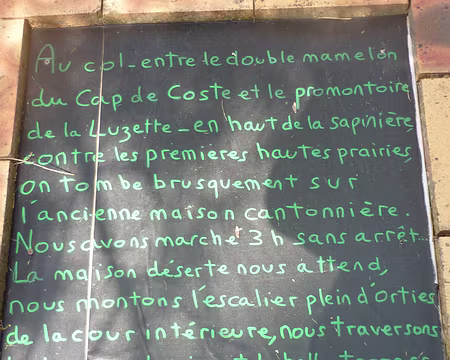 Au col-entre le double mamelon
du Cap de Coste et le promontoire
de la Luzette - en haut de la sapinière,
contre les premieres hautes prairies,
on tombe brusquement sur
l'ancienne maison cantonnière.
Nous avons marché 3 h sans arrêt...
La maison déserte nous attend,
nous montons l'escalier plein d'orties
de la cour intérieure, nous traversons